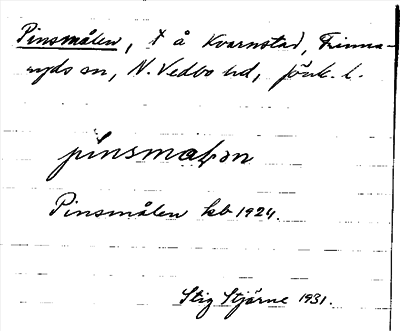 Pinsmålen, t å Kvarnstad, Frinna-
ryds sn, N. Vedbo hd, Jönk. l.
pinsmalən
Pinsmålen kb 1924.
Stig Stjärne 1931.